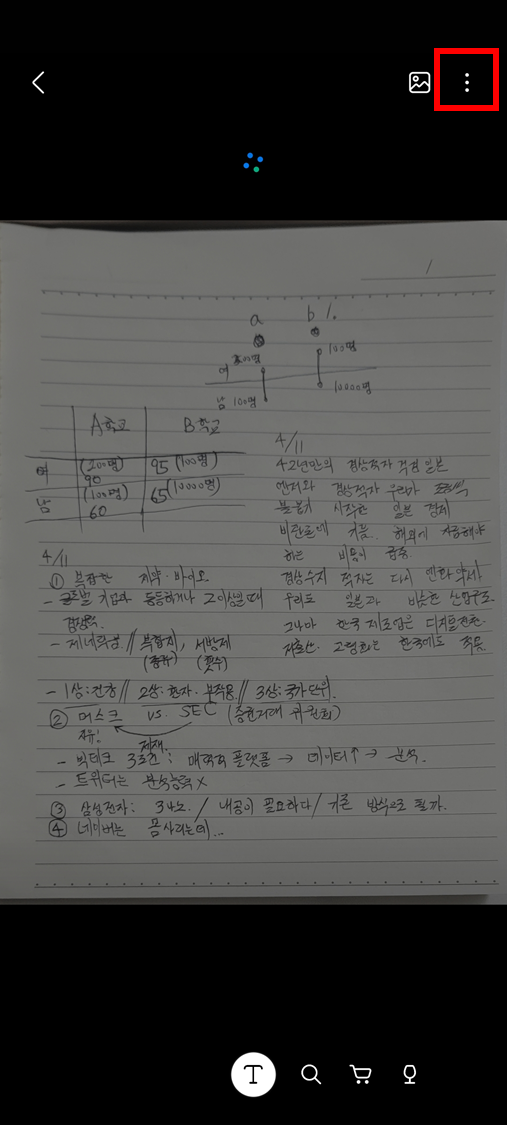 a
b %
여 200명
100명
남 100명
10000명
A학교
B학교
여
(200명)
90
95 (100명)
남
(100명)
60
65 (10000명)
4/11
42년만의 경상적자 걱정 일본
엔저와 경상적자 우려가
불붙기 시작한 일본 경제
비관론에 기름. 해외에 지급해야
하는 비용이 급증.
경상수지 적자는 다시 엔화약세.
우리도 일본과 비슷한 산업구조.
그나마 한국 제조업은 디지털전환.
저출산·고령화는 한국에도 적용.
4/11
① 복잡한 제약·바이오
- 글로벌 기업과 동등하거나 그 이상일 때
경쟁력.
- 제네릭성. // 복합제, 서방제
(종류) (횟수)
- 1상:건강 // 2상:환자·부작용 // 3상:국가단위.
② 머스크 vs. SEC (증권거래위원회)
자유!
제재.
- 빅테크 3조건: 매력적 플랫폼 → 데이터↑ → 분석.
- 트위터는 분석능력 X
③ 삼성전자: 3나노. / 내공이 필요하다 / 기존 방식으로 될까.
④ 네이버는 몸사리는데...
T